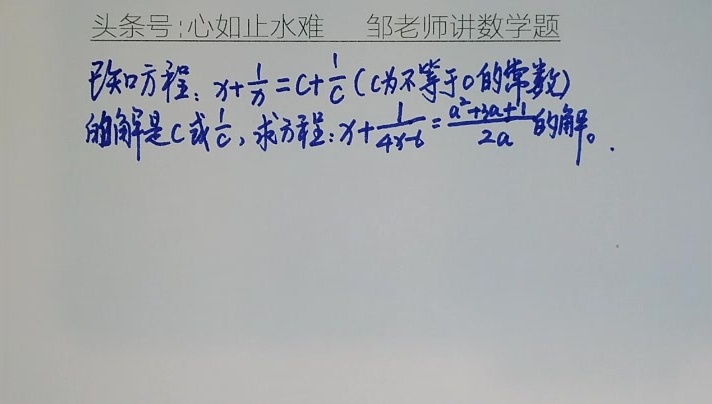 头条号:心如止水难 邹老师讲数学题
已知方程:x+1/x=c+1/c(c为不等于0的常数)
的解是c或1/c,求方程:x+1/(4x-6)=(a²+3a+1)/2a的解。